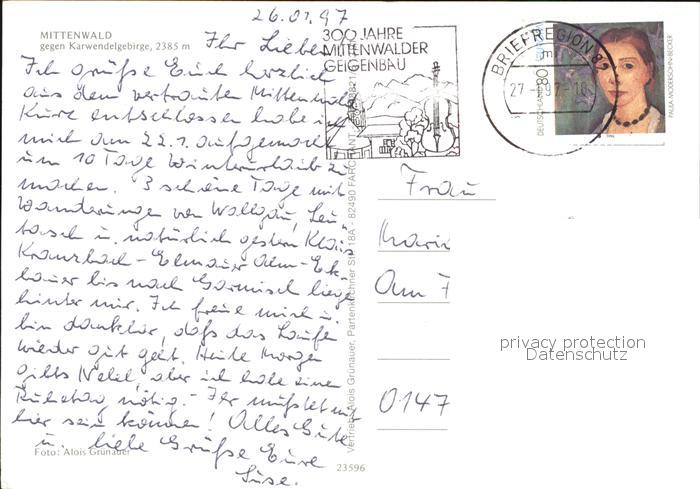 26.01.97
MITTENWALD
gegen Karwendelgebirge, 2385 m
Ihr Lieben
Ich grüße Euch herzlich
aus dem vertrauten Mittenwald
Kurz entschlossen habe ich
mich am 22.1. aufgemacht
um 10 Tage Winterurlaub zu
machen. 3 schöne Tage mit
Wanderungen von Wallgau, Leu-
tasch u. natürlich gestern Klais
Kranzbach - Elmauer Alm - Eck-
bauer bis nach Garmisch liegen
hinter mir. Ich freue mich u.
bin dankbar, daß das Laufen
wieder gut geht. Heute Morgen
gibts Nebel, aber ich habe einen
Ruhetag nötig. - Ihr müßtet mit
hier sein können! Alles Gute
u. liebe Grüße Eure
Suse.
Foto: Alois Grünauer
23596
Vertrieb: Alois Grünauer, Partenkirchner Str. 18A - 82490 FARCHANT
300 JAHRE
MITTENWALDER
GEIGENBAU
BRIEFREGION 82
m
27.-1.97-18
DEUTSCHLAND 80
PAULA MODERSOHN-BECKER
Frau
Mari
Am
0147
privacy protection
Datenschutz